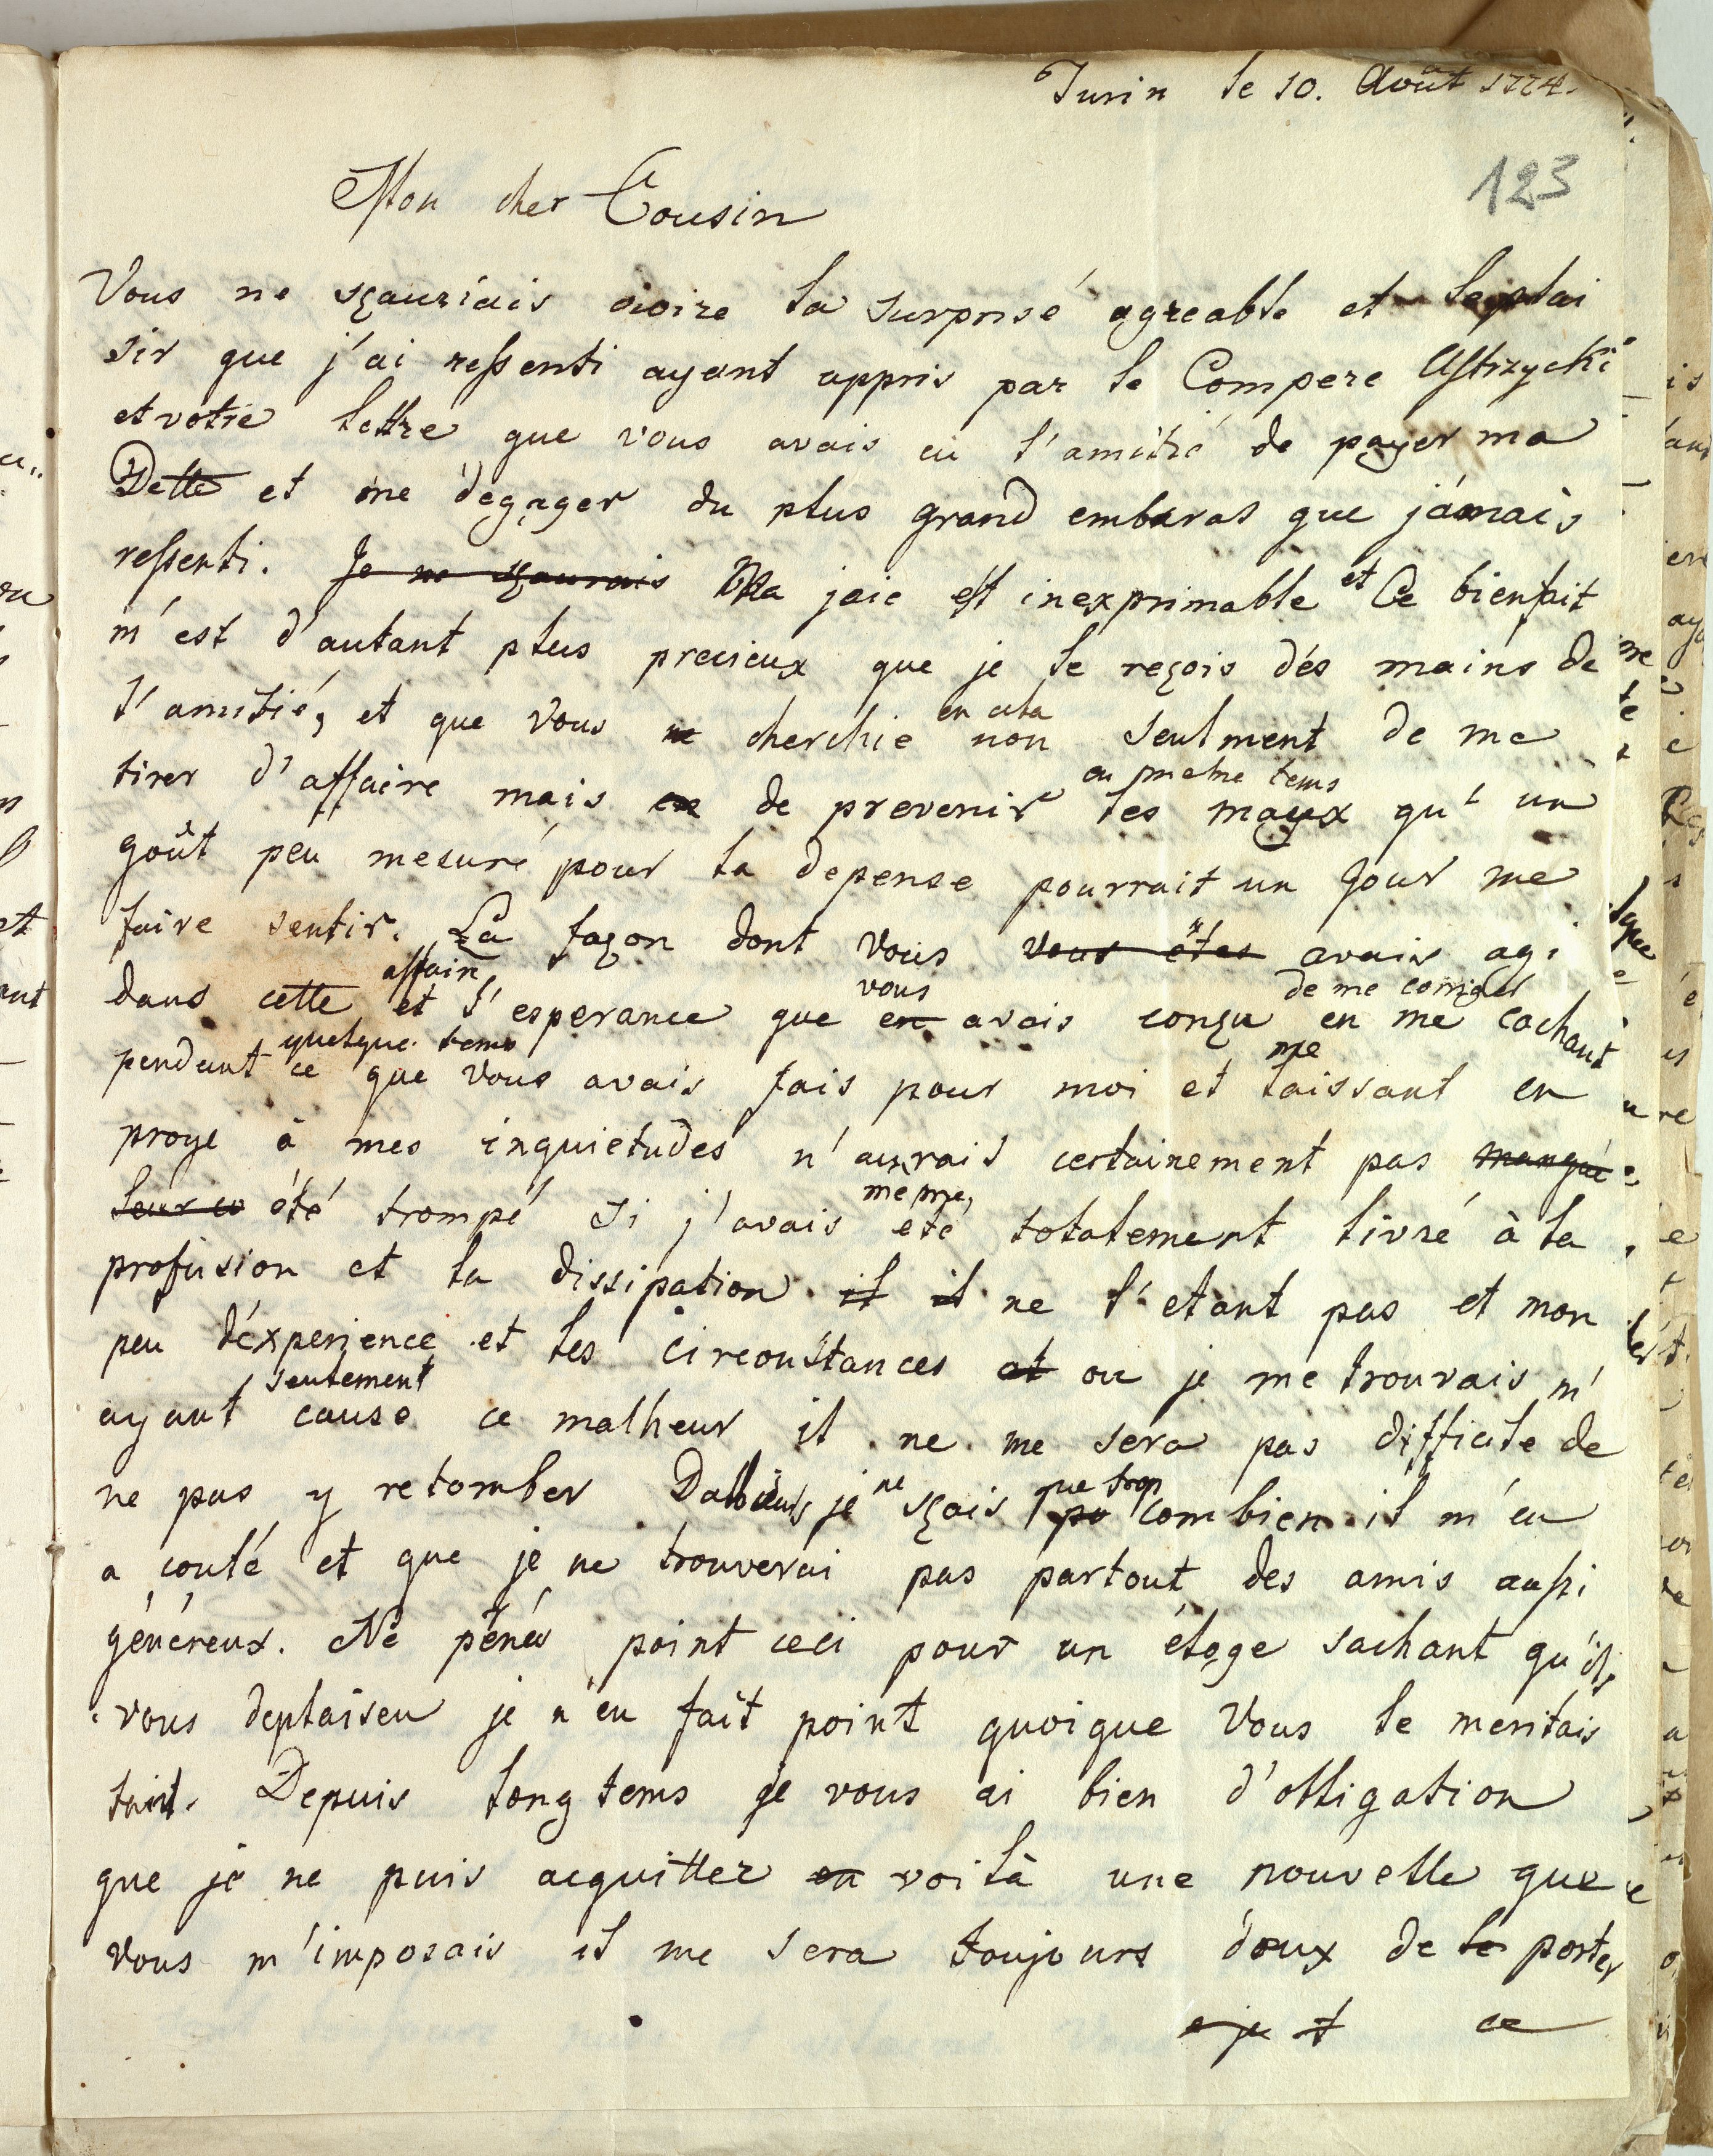 Turin le 10. Août 1774.
123
Mon cher Cousin
Vous ne sçauriais croire la surprise agreable et le plai
sir que j'ai ressenti ayant appris par le Compere Ustrzycki
et votre lettre que vous avais eu l'amitié de payer ma
Dette et me dégager du plus grand embaras que jámais
ressenti. Je ne sçaurais Ma joie est inexprimable et Ce bienfait
m'est d'autant plus precieux que je le reçois dés mains de
l'amitié, et que vous ne cherchie en cela non seulment de me
tirer d'affaire mais en de prevenir en meme tems les maux qu'un
goût peu mesuré pour la depense pourrait un jour me
faire sentir. La façon dont vous vous êtes avais agi
dans cette affaire, et l'esperance que vous en avais conçu de me corriger en me cachant
pendant quelque tems ce que vous avais fais pour moi et me laissant en
proye à mes inquietudes n'aurais certainement pas manqué
leur co été trompé si j'avais meme, été totalement livré à la
profusion et la dissipation il il ne l'etant pas et mon
peu déxperience et les circonstances et ou je me trouvais m'
ayant seulement causé ce malheur il ne me sera pas difficile de
ne pas y retomber Dailleurs je ne sçais que trop combien il m'en
a couté et que je ne trouverai pas partout des amis aussi
généreux. Ne pénés point ceci pour un éloge sachant qu'ils
vous deplaisen je n'en fait point quoique Vous le meritais
tant. Depuis longtems je vous ai bien d'obligation
que je ne puis acquitter en voilà une nouvelle que
vous m'imposais il me sera toujours doux de le porter
ce